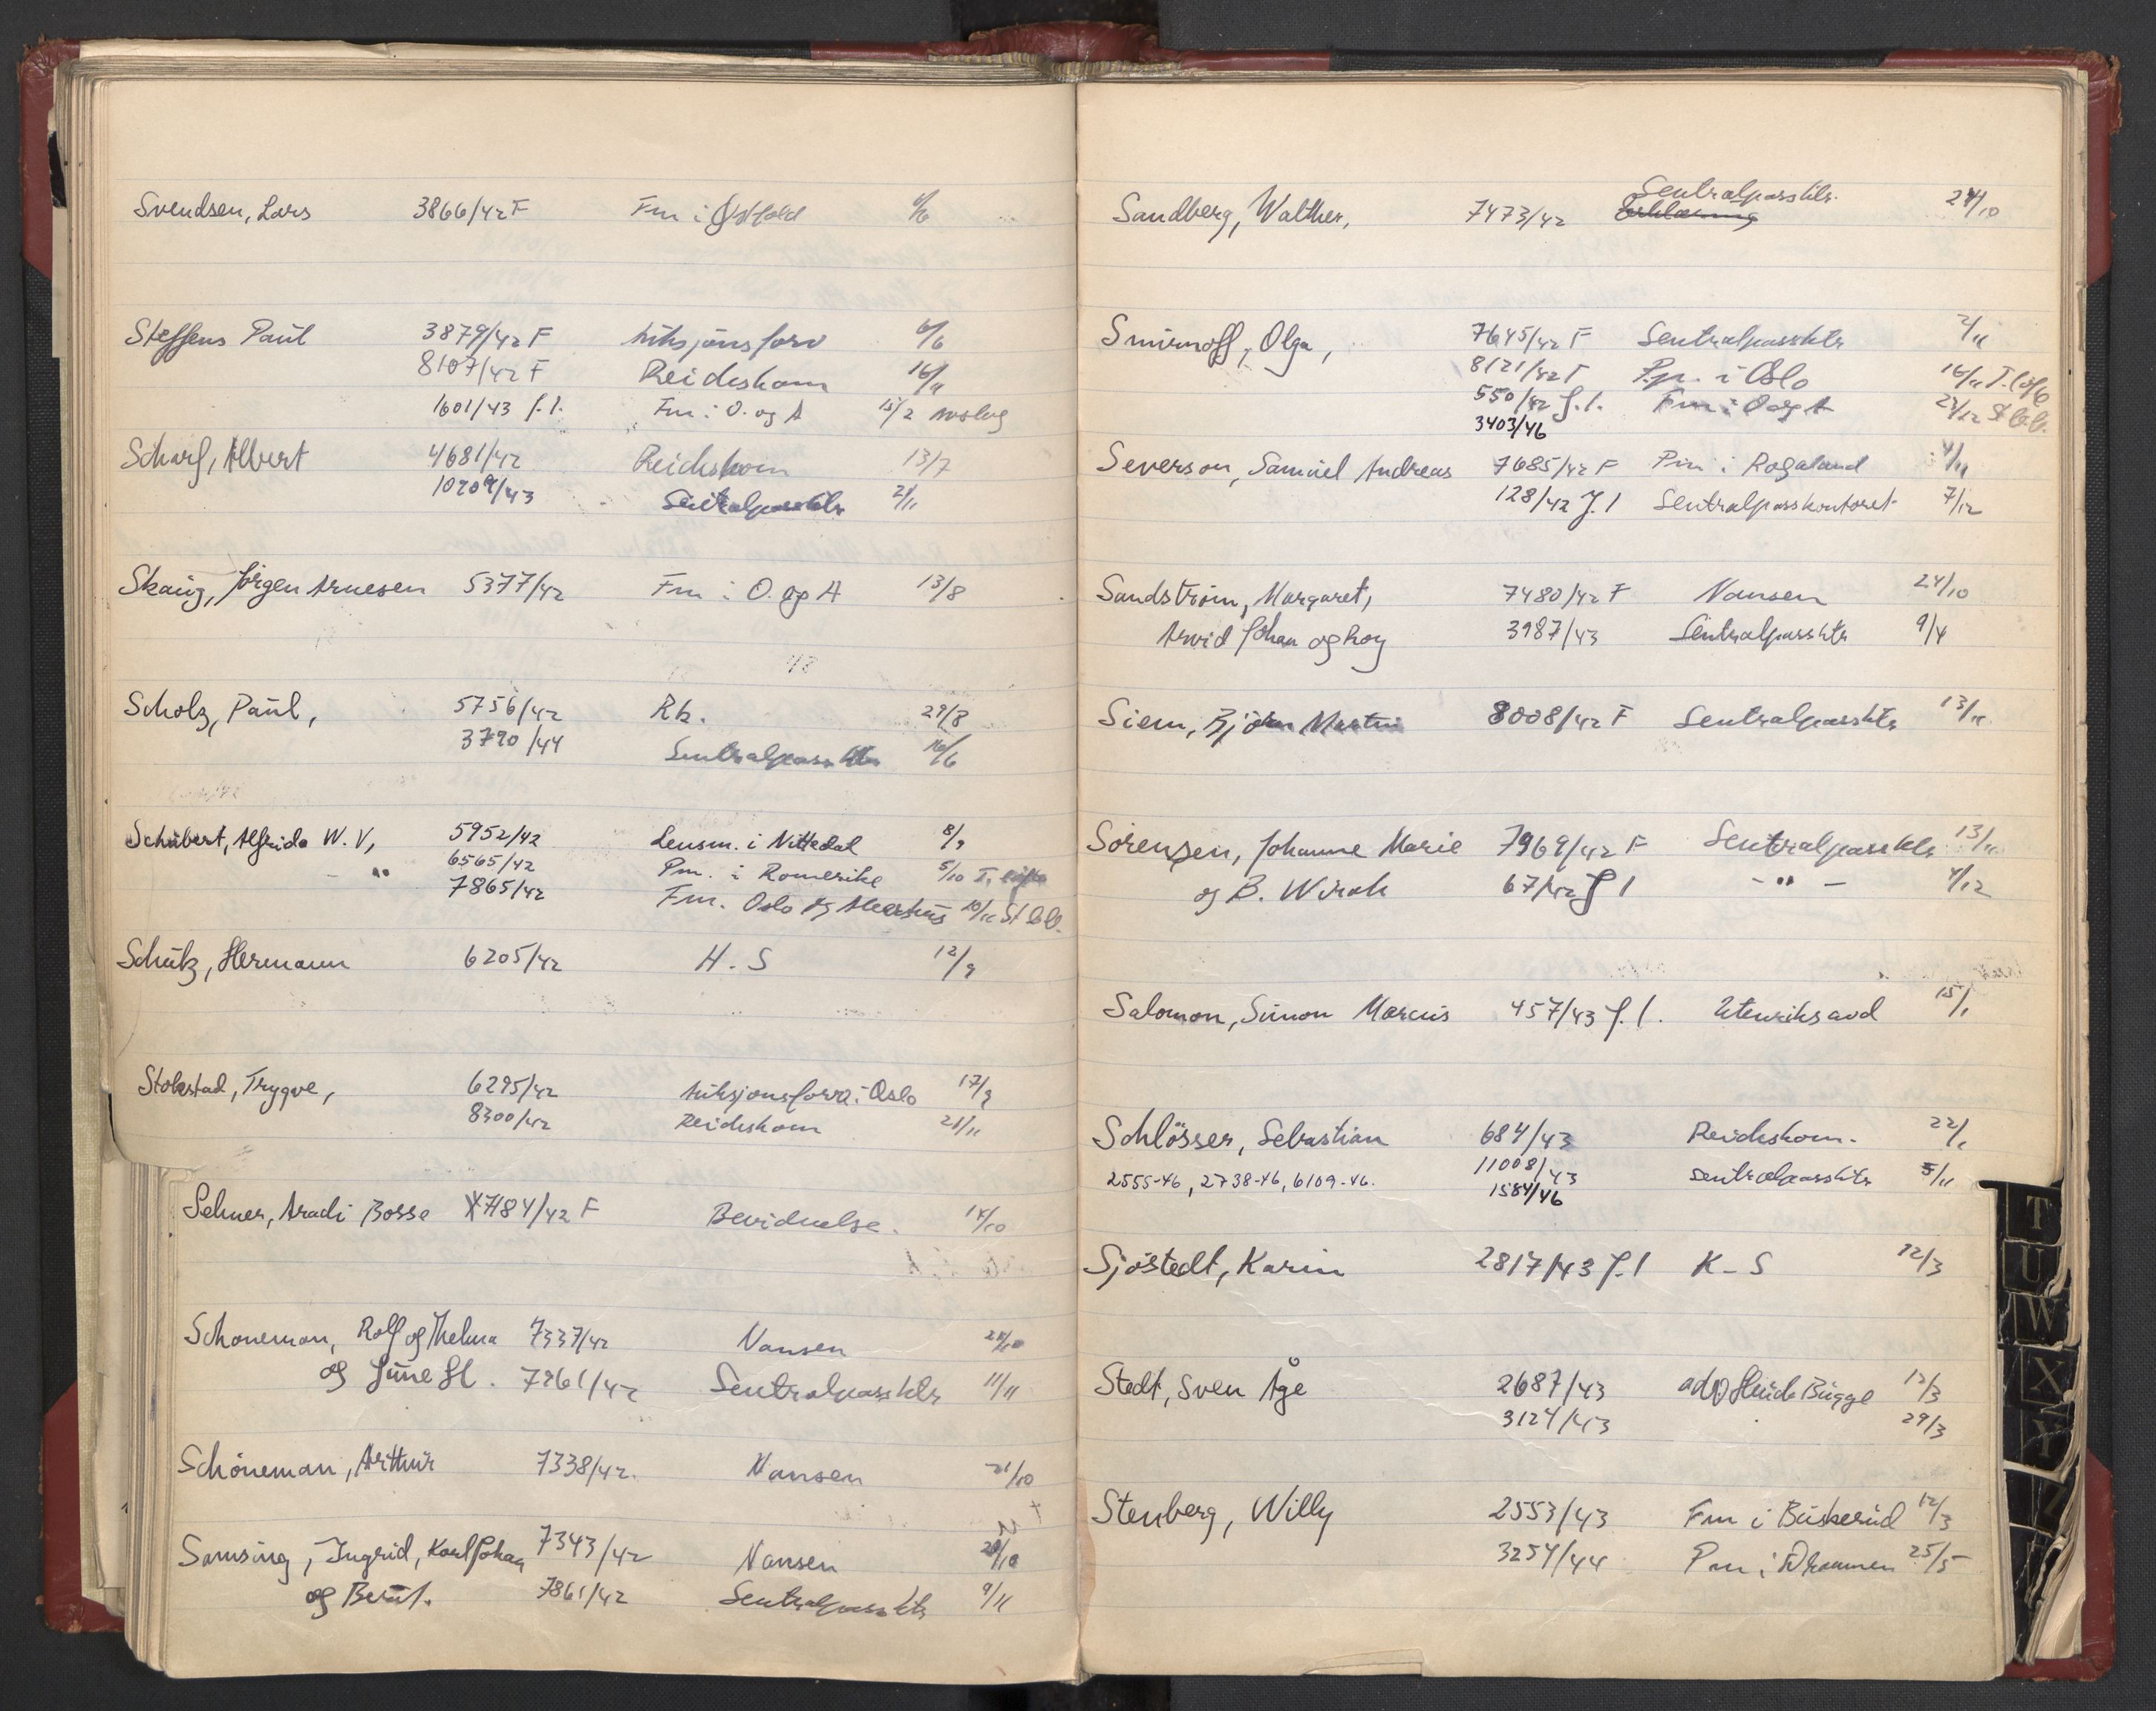 Svendsen, Lars 3866/42 F Fm i Østfold 6/6
Steffens Paul 3879/42 F Auksjonsforv 6/6
8107/42 F Reichskom 16/11
1601/43 J.l. Fm i O. og A 15/2 Avslag
Scharf, Albert 4681/42 Reichskom 13/7
10209/43 Sentralpassktr 2/11
Skaug, Jørgen Arnesen 5377/42 Fm i O. og A 13/8
Scholz, Paul, 5756/42 Rk. 29/8
3790/44 Sentralpassktr 16/6
Schubert, Alfrida W. V, 5952/42 Lensm. i Nittedal 8/9
- " 6565/42 Pm. i Romerike 5/10
7865/42 Fm. Oslo og Akershus 10/11 St.b.b.
Schutz, Hermann 6205/42 H. S 12/9
Stokstad, Trygve, 6295/42 Auksjonsforv. i Oslo 17/9
8300/42 Reichskom 21/11
Sehner, Aradi Bosse 7184/42 F Bevidnelse. 14/10
Schoneman, Rolf og Thelma 7337/42 Nansen 21/10
og June H. 7961/42 Sentralpassktr 11/11
Schöneman, Arthur 7338/42. Nansen 21/10
Samsing, Ingrid, Karl Johan 7343/42 Nansen /10
og Bernt. 7861/42 Sentralpassktr 9/11
Sandberg, Walther, 7473/42 Sentralpassktr. 24/10
Erklæring
Smirnoff, Olga, 7645/42 F Sentralpassktr 2/11
8121/42 F Pp. i Oslo 16/11
550/42 J.l. Fm i O og A 23/12 St.b.b.
3403/46
Severson, Samuel Andreas 7685/42 F Pm i Rogaland 4/11
128/42 J.l Sentralpasskontoret 7/12
Sandström, Margaret, 7480/42 F Nansen 24/10
Arvid Johan og Roy 3987/43 Sentralpassktr 9/4
Siem, Bjørn Martin 8008/42 F Sentralpassktr 13/11
Sörensen, Johanne Marie 7969/42 F Sentralpassktr 13/11
og B. Wirak 67/42 J l - " - 4/12
Salomon, Simon Marcus 457/43 J.l. Utenriksavd 15/1
Schlösser, Sebastian 684/43 Reichskom. 22/1
2555-46, 2738-46, 6109-46. 11008/43 Sentralpassktr 5/11
1584/46
Sjöstedt, Karin 2817/43 J.l K-S 12/3
Stedt, Sven Åge 2687/43 adv Bugge 12/3
3124/43 29/3
Stenberg, Willy 2553/43 Fm i Buskerud 12/3
3254/44 Pm i Drammen 25/5
T
U
W
X
Y
Z